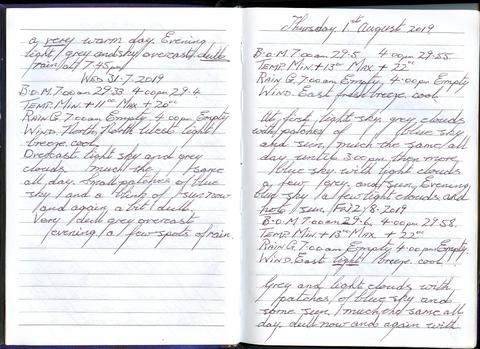 a very warm day. Evening
light / grey and sky overcast, dull
rain at 7.45pm
WED 31.7.2019
B.O.M. 7.00am 29.33 4.00pm 29.4
TEMP. MIN. + 11°C MAX + 20°C
RAIN G. 7.00am Empty 4.00pm Empty
WIND. North, North West light
breeze. cool
Overcast light sky and grey
clouds, much the same
all day. Small patches of blue
sky / and a of sun now
and again a bit dull.
Very / dull grey overcast
evening / a few spots of rain.
Thursday 1st August 2019
B.O.M. 7.00am 29.5, 4.00pm 29.55
TEMP MIN + 13°C MAX + 22°C
RAIN G. 7.00am Empty, 4.00pm Empty
WIND. East fresh breeze. cool
At first light sky grey clouds
with patches of / / blue sky
and sun, much the same all
day until 3.00pm then more
blue sky with light clouds
a few / grey and sun, Evening
blue sky / a few light clouds and
/ sun, FRI 2/8.2019
B.O.M. 7.00am 29.6, 4.00pm 29.58.
TEMP. MIN. + 13°C MAX + 22°C
RAIN G. 7.00am Empty 4.00pm Empty
WIND. East light / breeze. cool.
Grey and light clouds with,
patches / of blue sky and
some sun / much the same all
day, dull now and again with